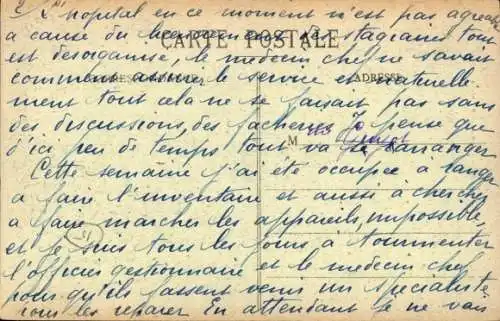 2
L'hopital en ce moment n'est pas agreable
a cause du licenciement des stagiaires tout
CARTE POSTALE
est desorganisé, le medecin chef ne savait
comment assurer le service et naturelle
CORRESPONDANCE ADRESSE
ment tout cela ne se faisait pas sans
des discussions, des facheries. Je pense que
M
d'ici peu de temps tout va se arranger
Cette semaine j'ai été occupée a ranger
a faire l'inventaire et aussi a chercher
a faire marcher les appareils, impossible
et je suis tous les jours a tourmenter
l'officier gestionnaire et le medecin chef
pour qu'ils fassent venir un specialiste
pour les reparer En attendant je ne vais